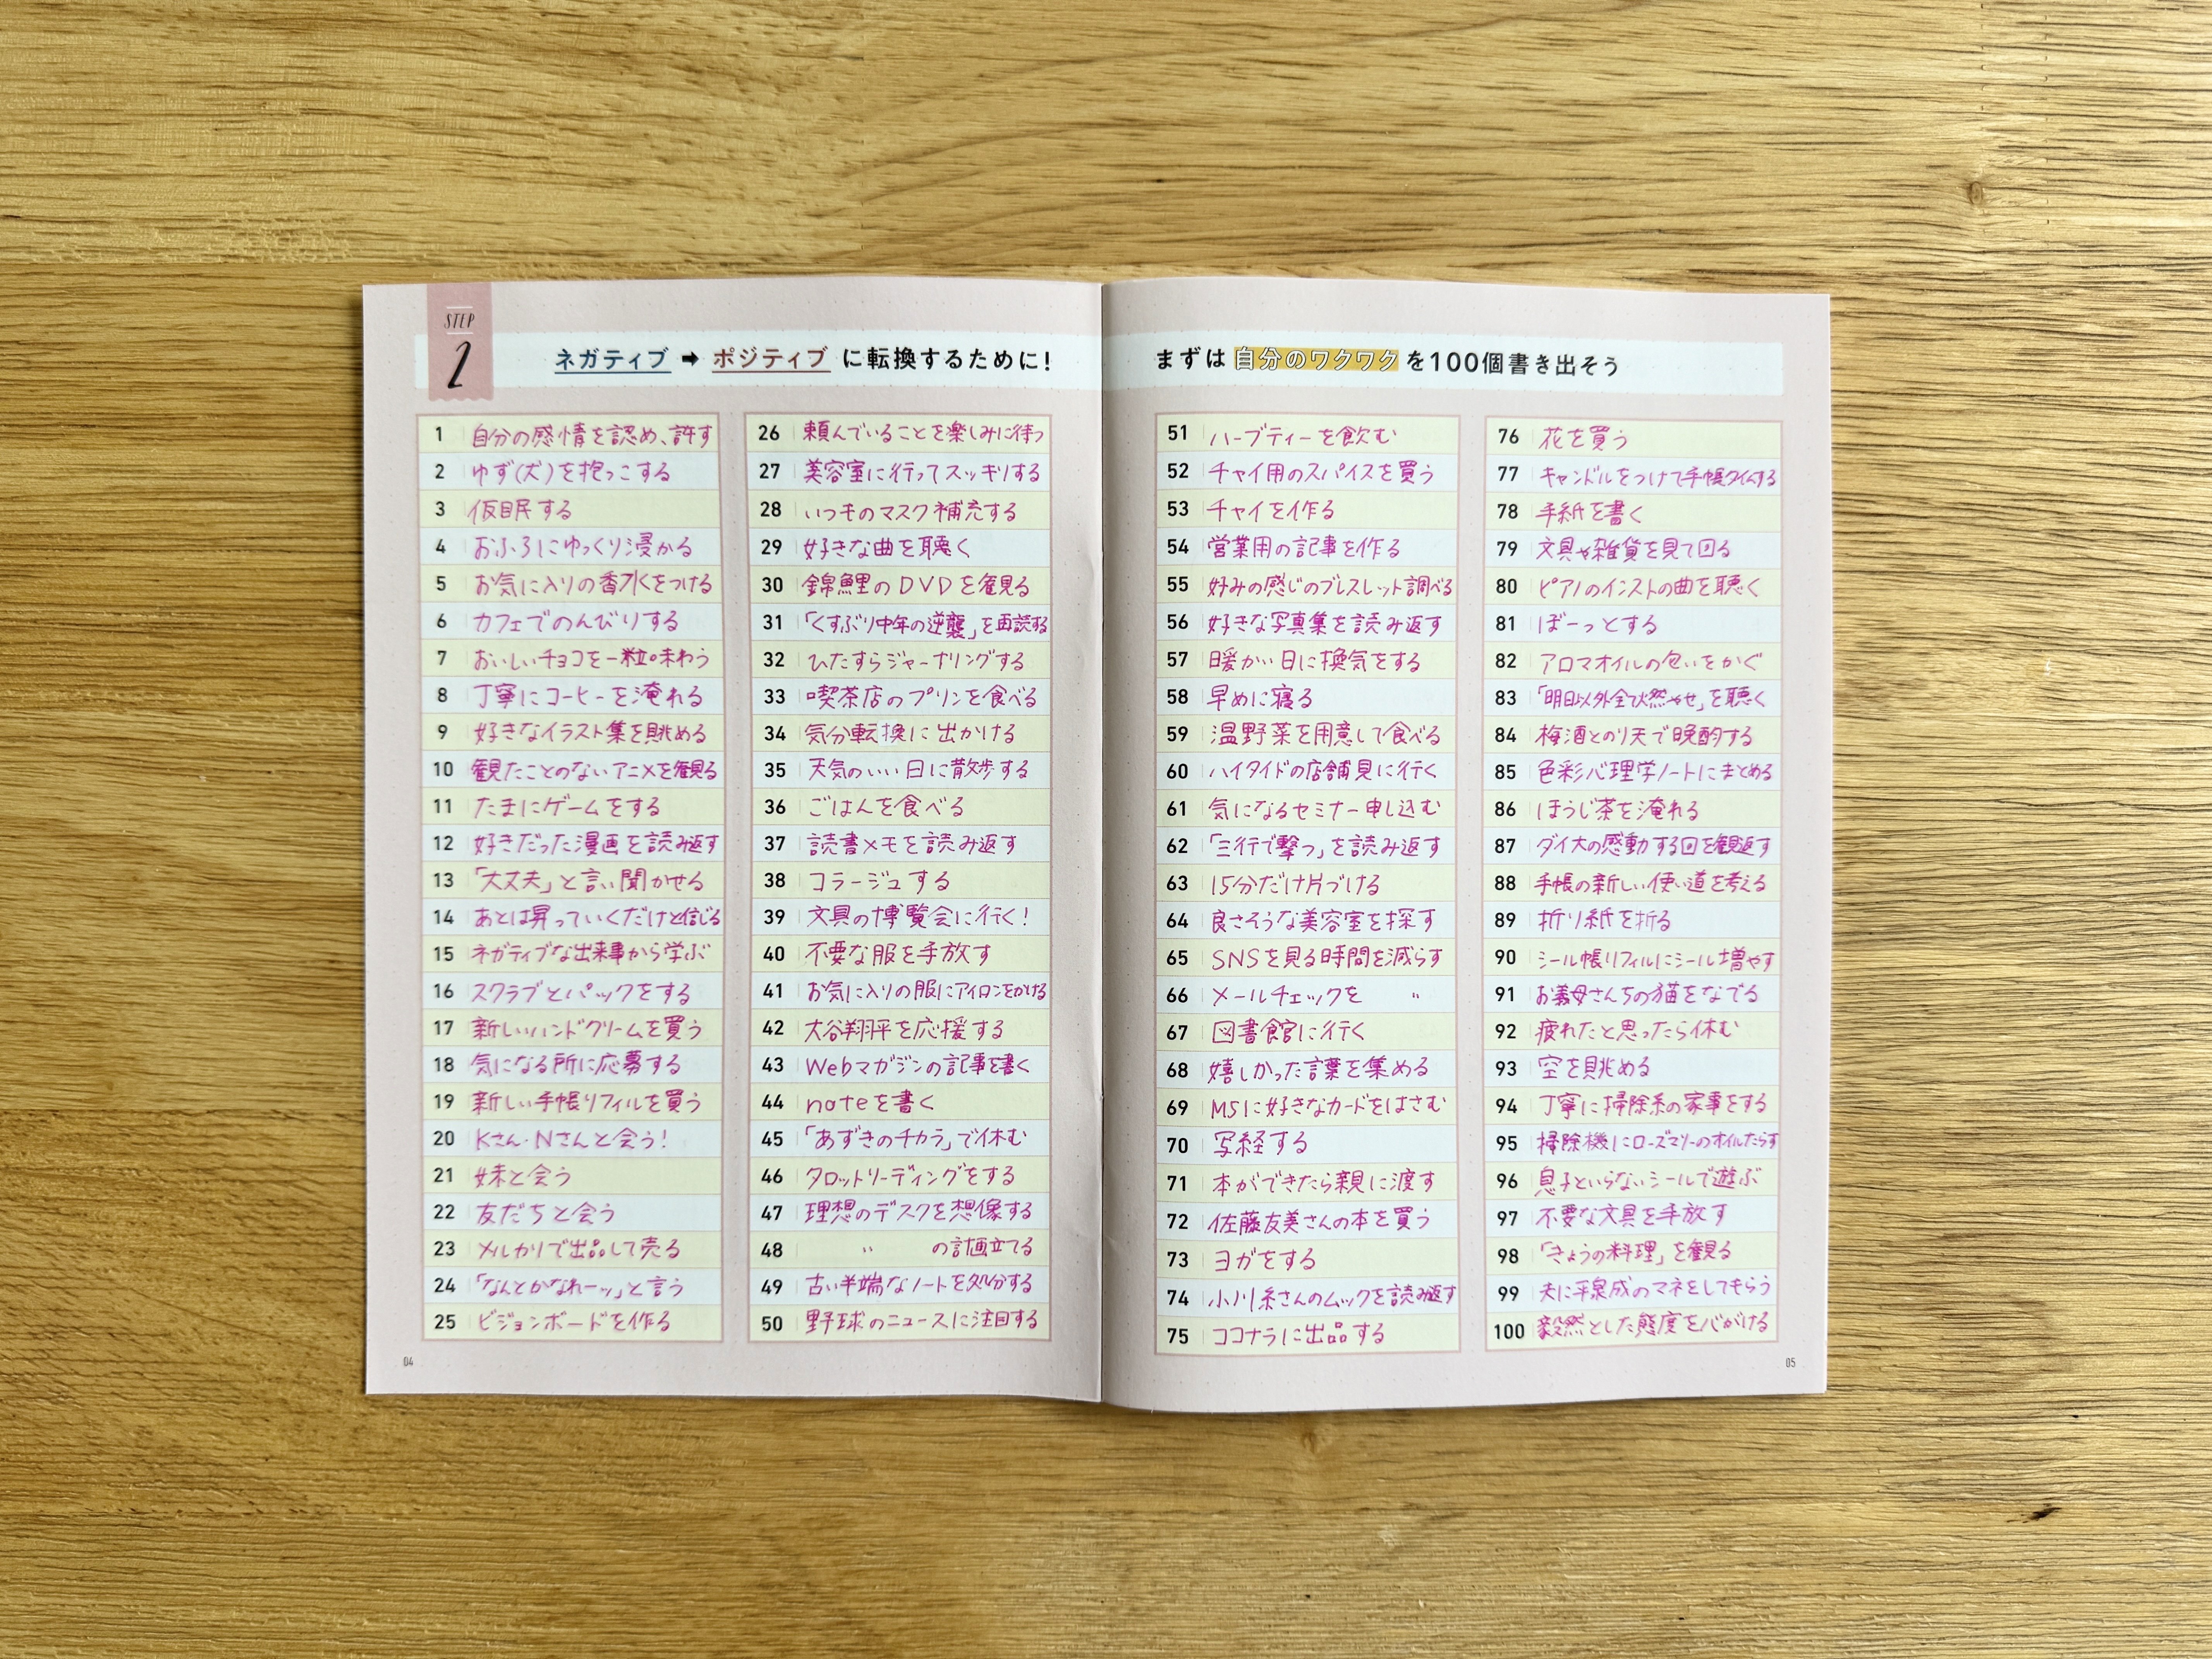 STEP
2
ネガティブ➡ポジティブに転換するために!
1 自分の感情を認め、許す
2 ゆず(犬)を抱っこする
3 仮眠する
4 おふろにゆっくり浸かる
5 お気に入りの香水をつける
6 カフェでのんびりする
7 おいしいチョコを一粒味わう
8 丁寧にコーヒーを淹れる
9 好きなイラスト集を眺める
10 観たことのないアニメを観る
11 たまにゲームをする
12 好きだった漫画を読み返す
13 「大丈夫」と言い聞かせる
14 あとは昇っていくだけと信じる
15 ネガティブな出来事から学ぶ
16 スクラブとパックをする
17 新しいハンドクリームを買う
18 気になる所に応募する
19 新しい手帳リフィルを買う
20 Kさん・Nさんと会う!
21 妹と会う
22 友だちと会う
23 メルカリで出品して売る
24 「なんとかなれーッ」と言う
25 ビジョンボードを作る
26 頼んでいることを楽しみに待つ
27 美容室に行ってスッキリする
28 いつものマスク補充する
29 好きな曲を聴く
30 錦鯉のDVDを観る
31 「くすぶり中年の逆襲」を再読する
32 ひたすらジャーナリングする
33 喫茶店のプリンを食べる
34 気分転換に出かける
35 天気のいい日に散歩する
36 ごはんを食べる
37 読書メモを読み返す
38 コラージュする
39 文具の博覧会に行く!
40 不要な服を手放す
41 お気に入りの服にアイロンをかける
42 大谷翔平を応援する
43 Webマガジンの記事を書く
44 noteを書く
45 「あずきのチカラ」で休む
46 タロットリーディングをする
47 理想のデスクを想像する
48 〃 の計画立てる
49 古い半端なノートを処分する
50 野球のニュースに注目する
04
まずは自分のワクワクを100個書き出そう
51 ハーブティーを飲む
52 チャイ用のスパイスを買う
53 チャイを作る
54 営業用の記事を作る
55 好みの感じのブレスレット調べる
56 好きな写真集を読み返す
57 暖かい日に換気をする
58 早めに寝る
59 温野菜を用意して食べる
60 ハイタイドの店舗見に行く
61 気になるセミナー申し込む
62 「三行で撃つ」を読み返す
63 15分だけ片づける
64 良さそうな美容室を探す
65 SNSを見る時間を減らす
66 メールチェックを 〃
67 図書館に行く
68 嬉しかった言葉を集める
69 M5に好きなカードをはさむ
70 写経する
71 本ができたら親に渡す
72 佐藤友美さんの本を買う
73 ヨガをする
74 小川糸さんのムックを読み返す
75 ココナラに出品する
76 花を買う
77 キャンドルをつけて手帳タイムする
78 手紙を書く
79 文具や雑貨を見て回る
80 ピアノのインストの曲を聴く
81 ぼーっとする
82 アロマオイルの匂いをかぐ
83 「明日以外全て燃やせ」を聴く
84 梅酒とのり天で晩酌する
85 色彩心理学ノートにまとめる
86 ほうじ茶を淹れる
87 ダイ大の感動する回を観返す
88 手帳の新しい使い道を考える
89 折り紙を折る
90 シール帳リフィルにシール増やす
91 お義母さんちの猫をなでる
92 疲れたと思ったら休む
93 空を眺める
94 丁寧に掃除系の家事をする
95 掃除機にローズマリーのオイルたらす
96 息子といらないシールで遊ぶ
97 不要な文具を手放す
98 「きょうの料理」を観る
99 夫に平泉成のマネをしてもらう
100 毅然とした態度を心がける
05